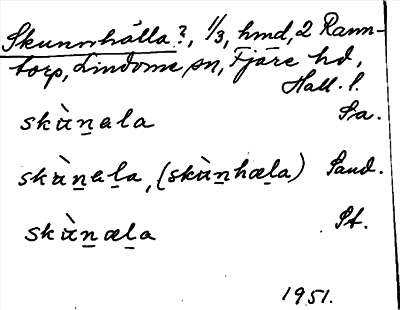 Skunnhálla?, 1/3, hmd, 2 Rann-
torp, Lindome sn, Fjäre hd,
Hall. l.
skὰn̲ala Sa.
skὰn̲al̲a, (skὰn̲hæl̲a) Sand.
skὰn̲æl̲a St.
1951.